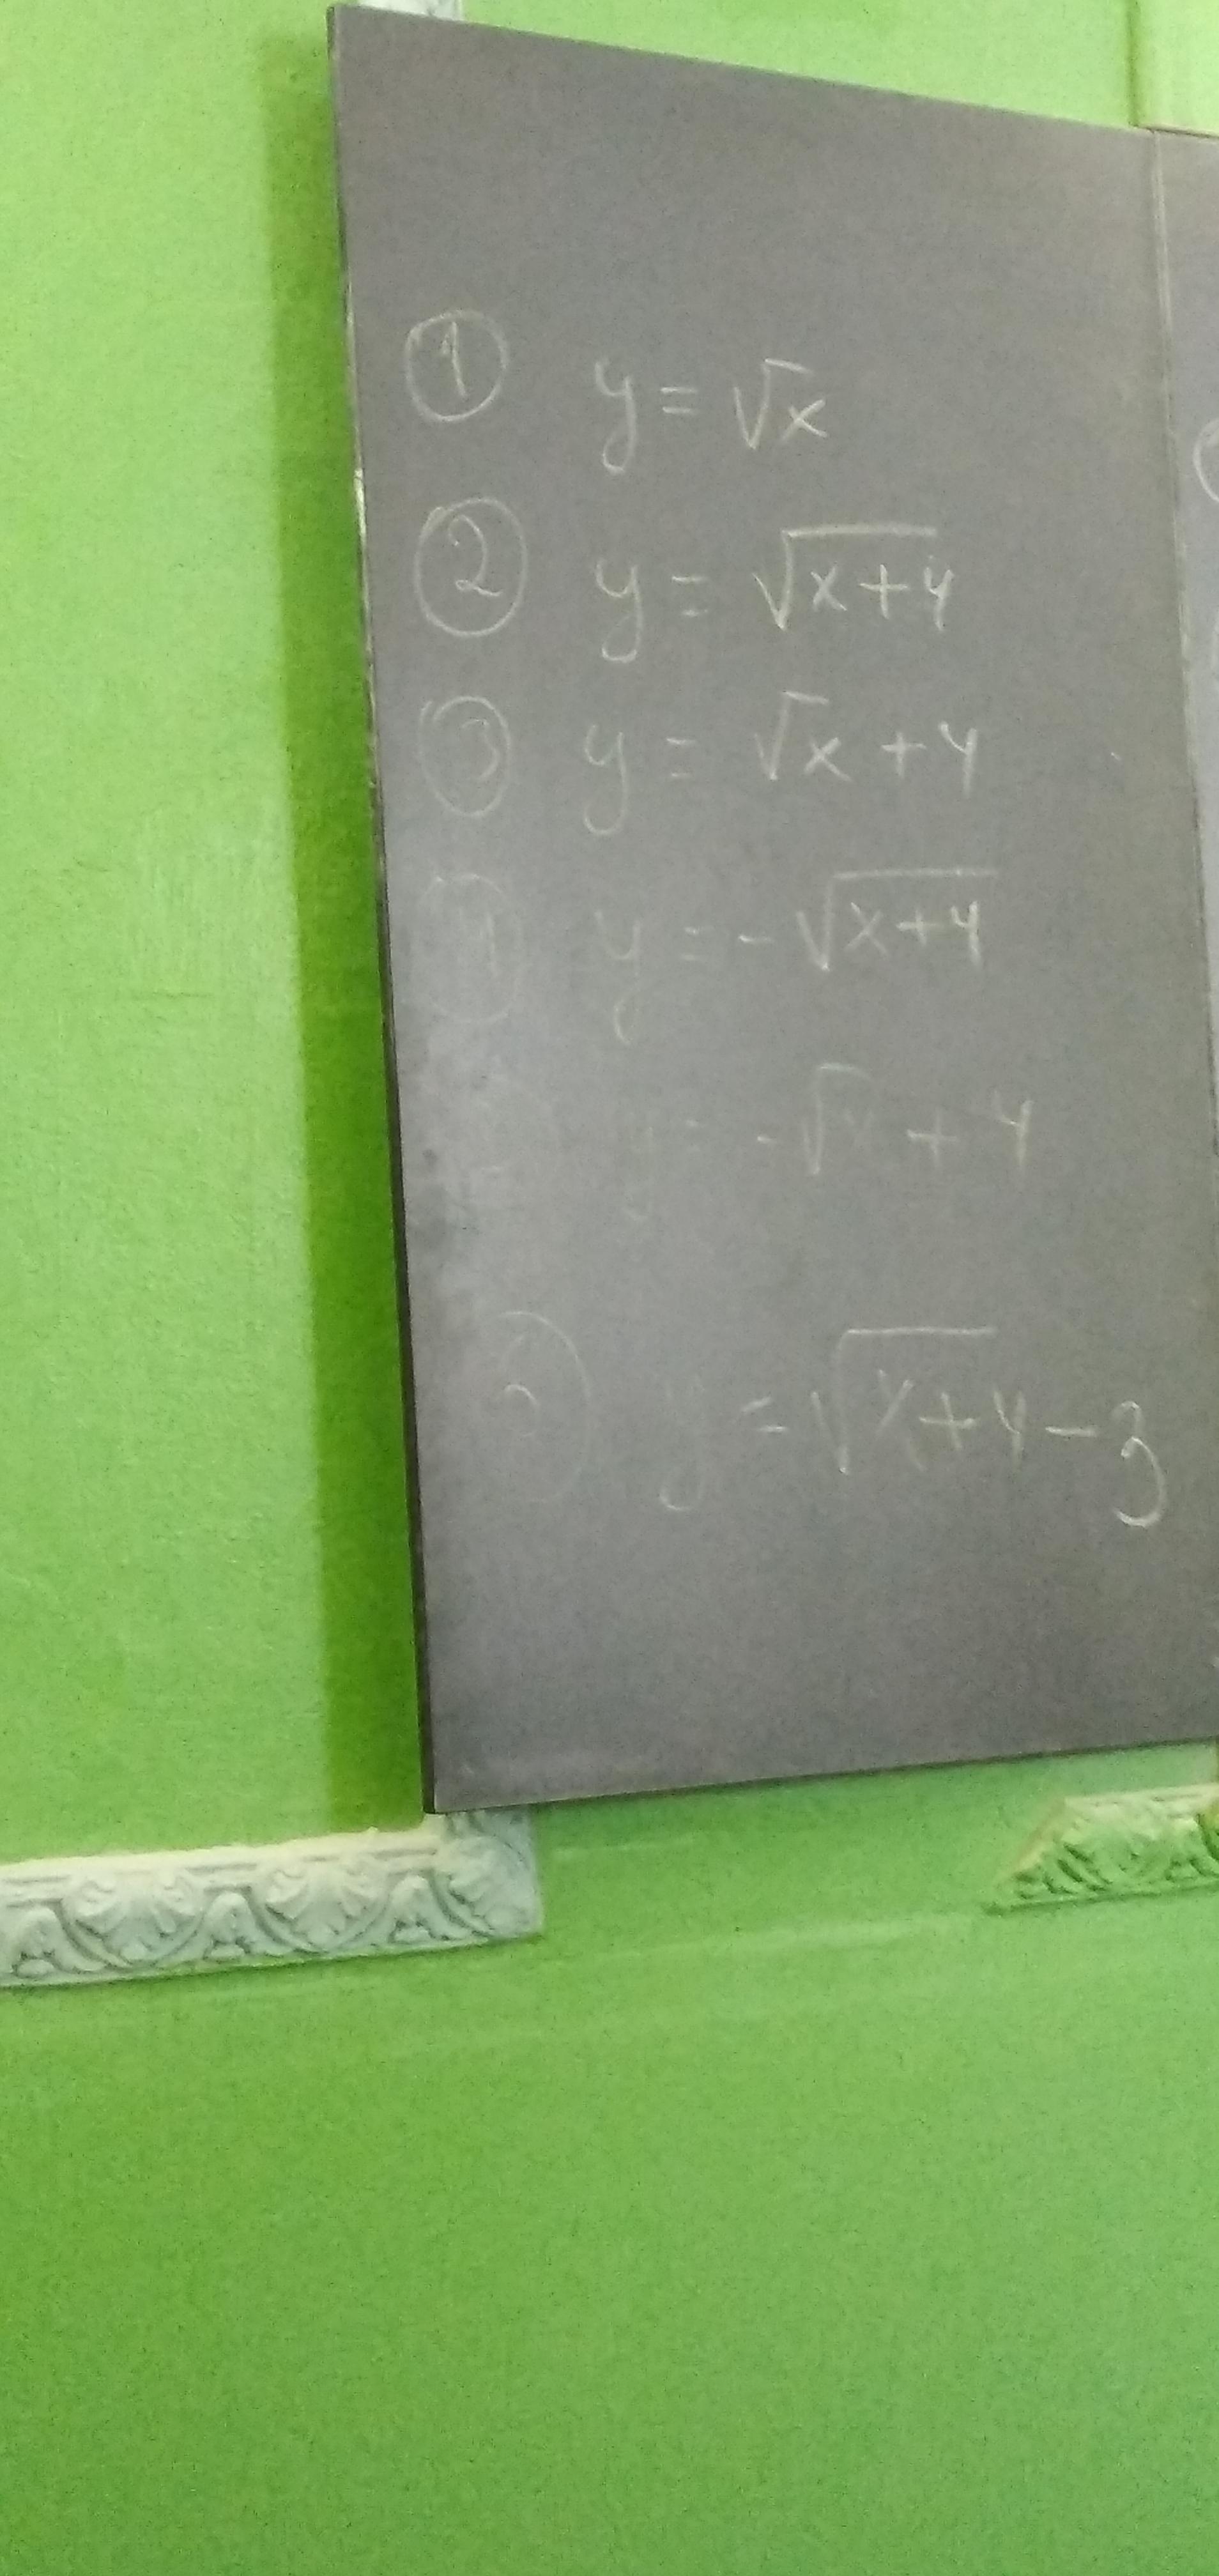 ① y = √x
② y = √(x+4)
③ y = √x + 4
④ y = -√(x+4)
y = -√x + 4
y = √(x+4) - 3